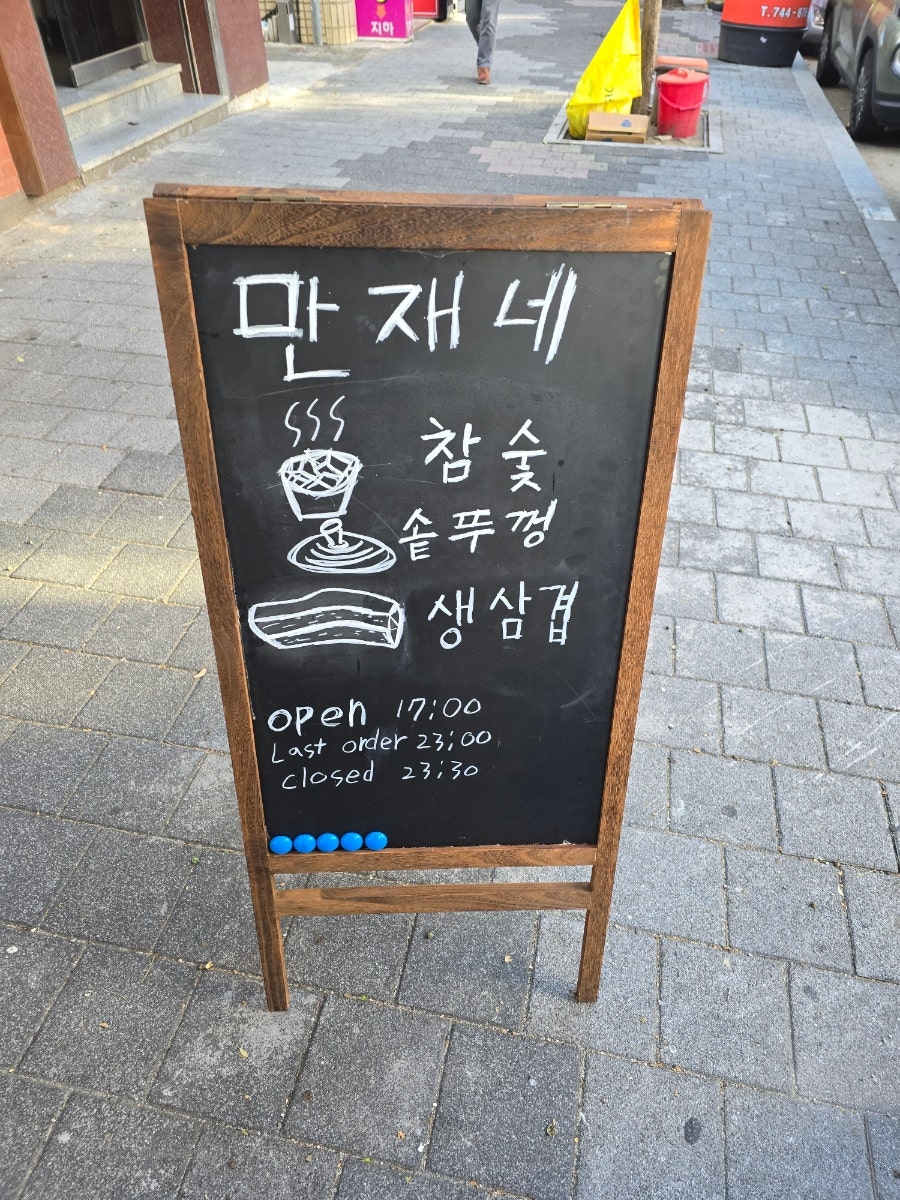 지하
T. 744-87
만재네
참숯
솥뚜껑
생삼겹
open 17:00
Last order 23:00
closed 23:30